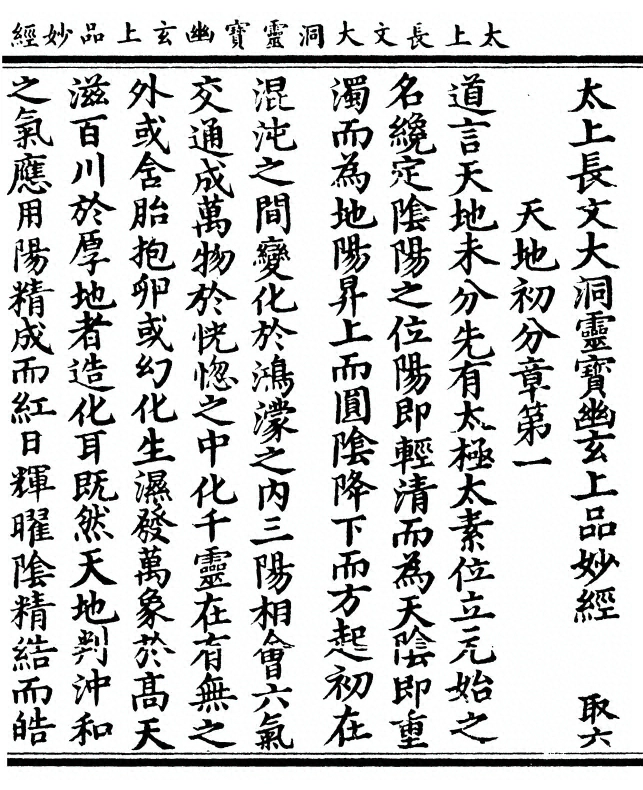 太上長文大洞靈寶幽玄上品妙經
太上長文大洞靈寶幽玄上品妙經 取六
天地初分章第一
道言天地未分先有太極太素位立元始之
名纔定陰陽之位陽即輕清而為天陰即重
濁而為地陽昇上而圓陰降下而方起初在
混沌之間變化於鴻濛之內三陽相會六氣
交通成萬物於恍惚之中化千靈在有無之
外或含胎抱卵或幻化生濕發萬象於高天
滋百川於厚地者造化耳既然天地判沖和
之氣應用陽精成而紅日輝曜陰精結而皓